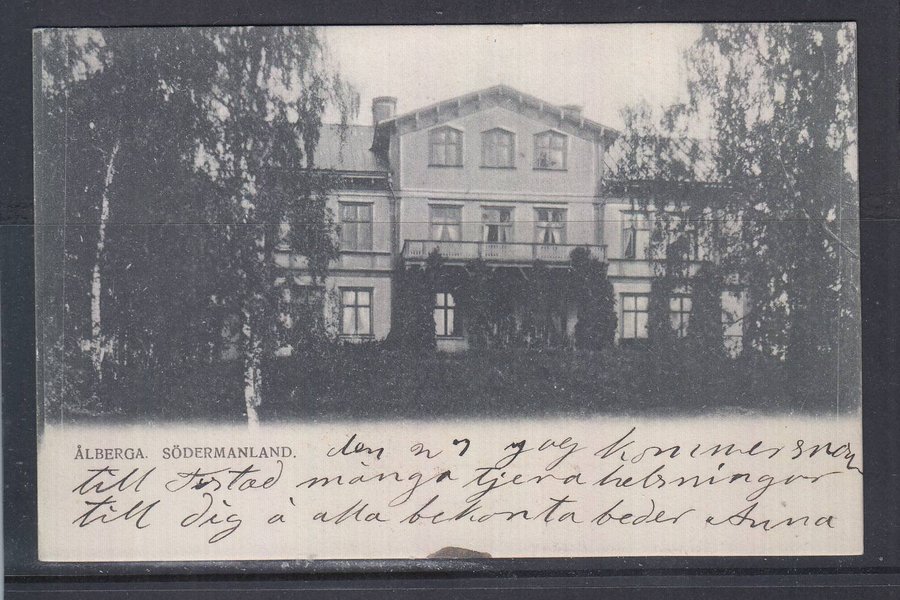 ÅLBERGA. SÖDERMANLAND. den 27 jag kommer snar
till Tystad många tjera helsningar
till dig å alla bekanta beder Anna